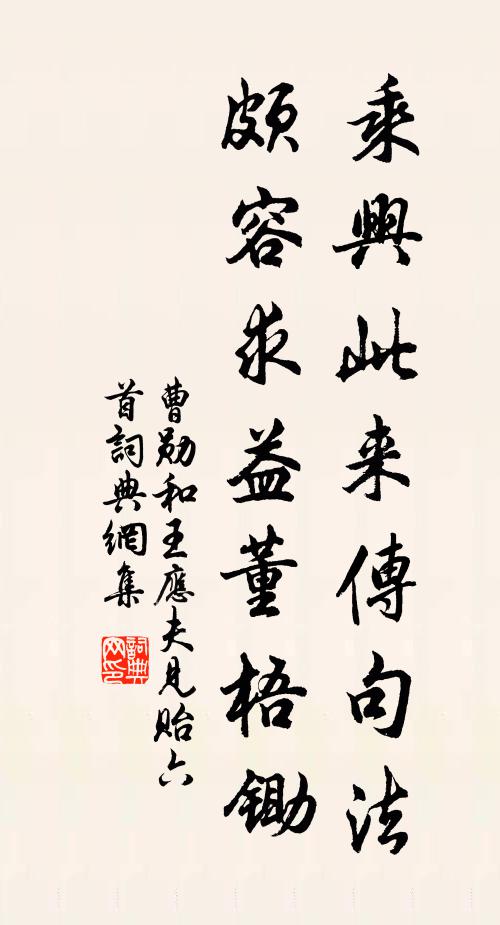 乘興此来傳句法
頗容求益董梧鋤
曹勛和王應夫見貽六
首詞典網集
詞典
网印